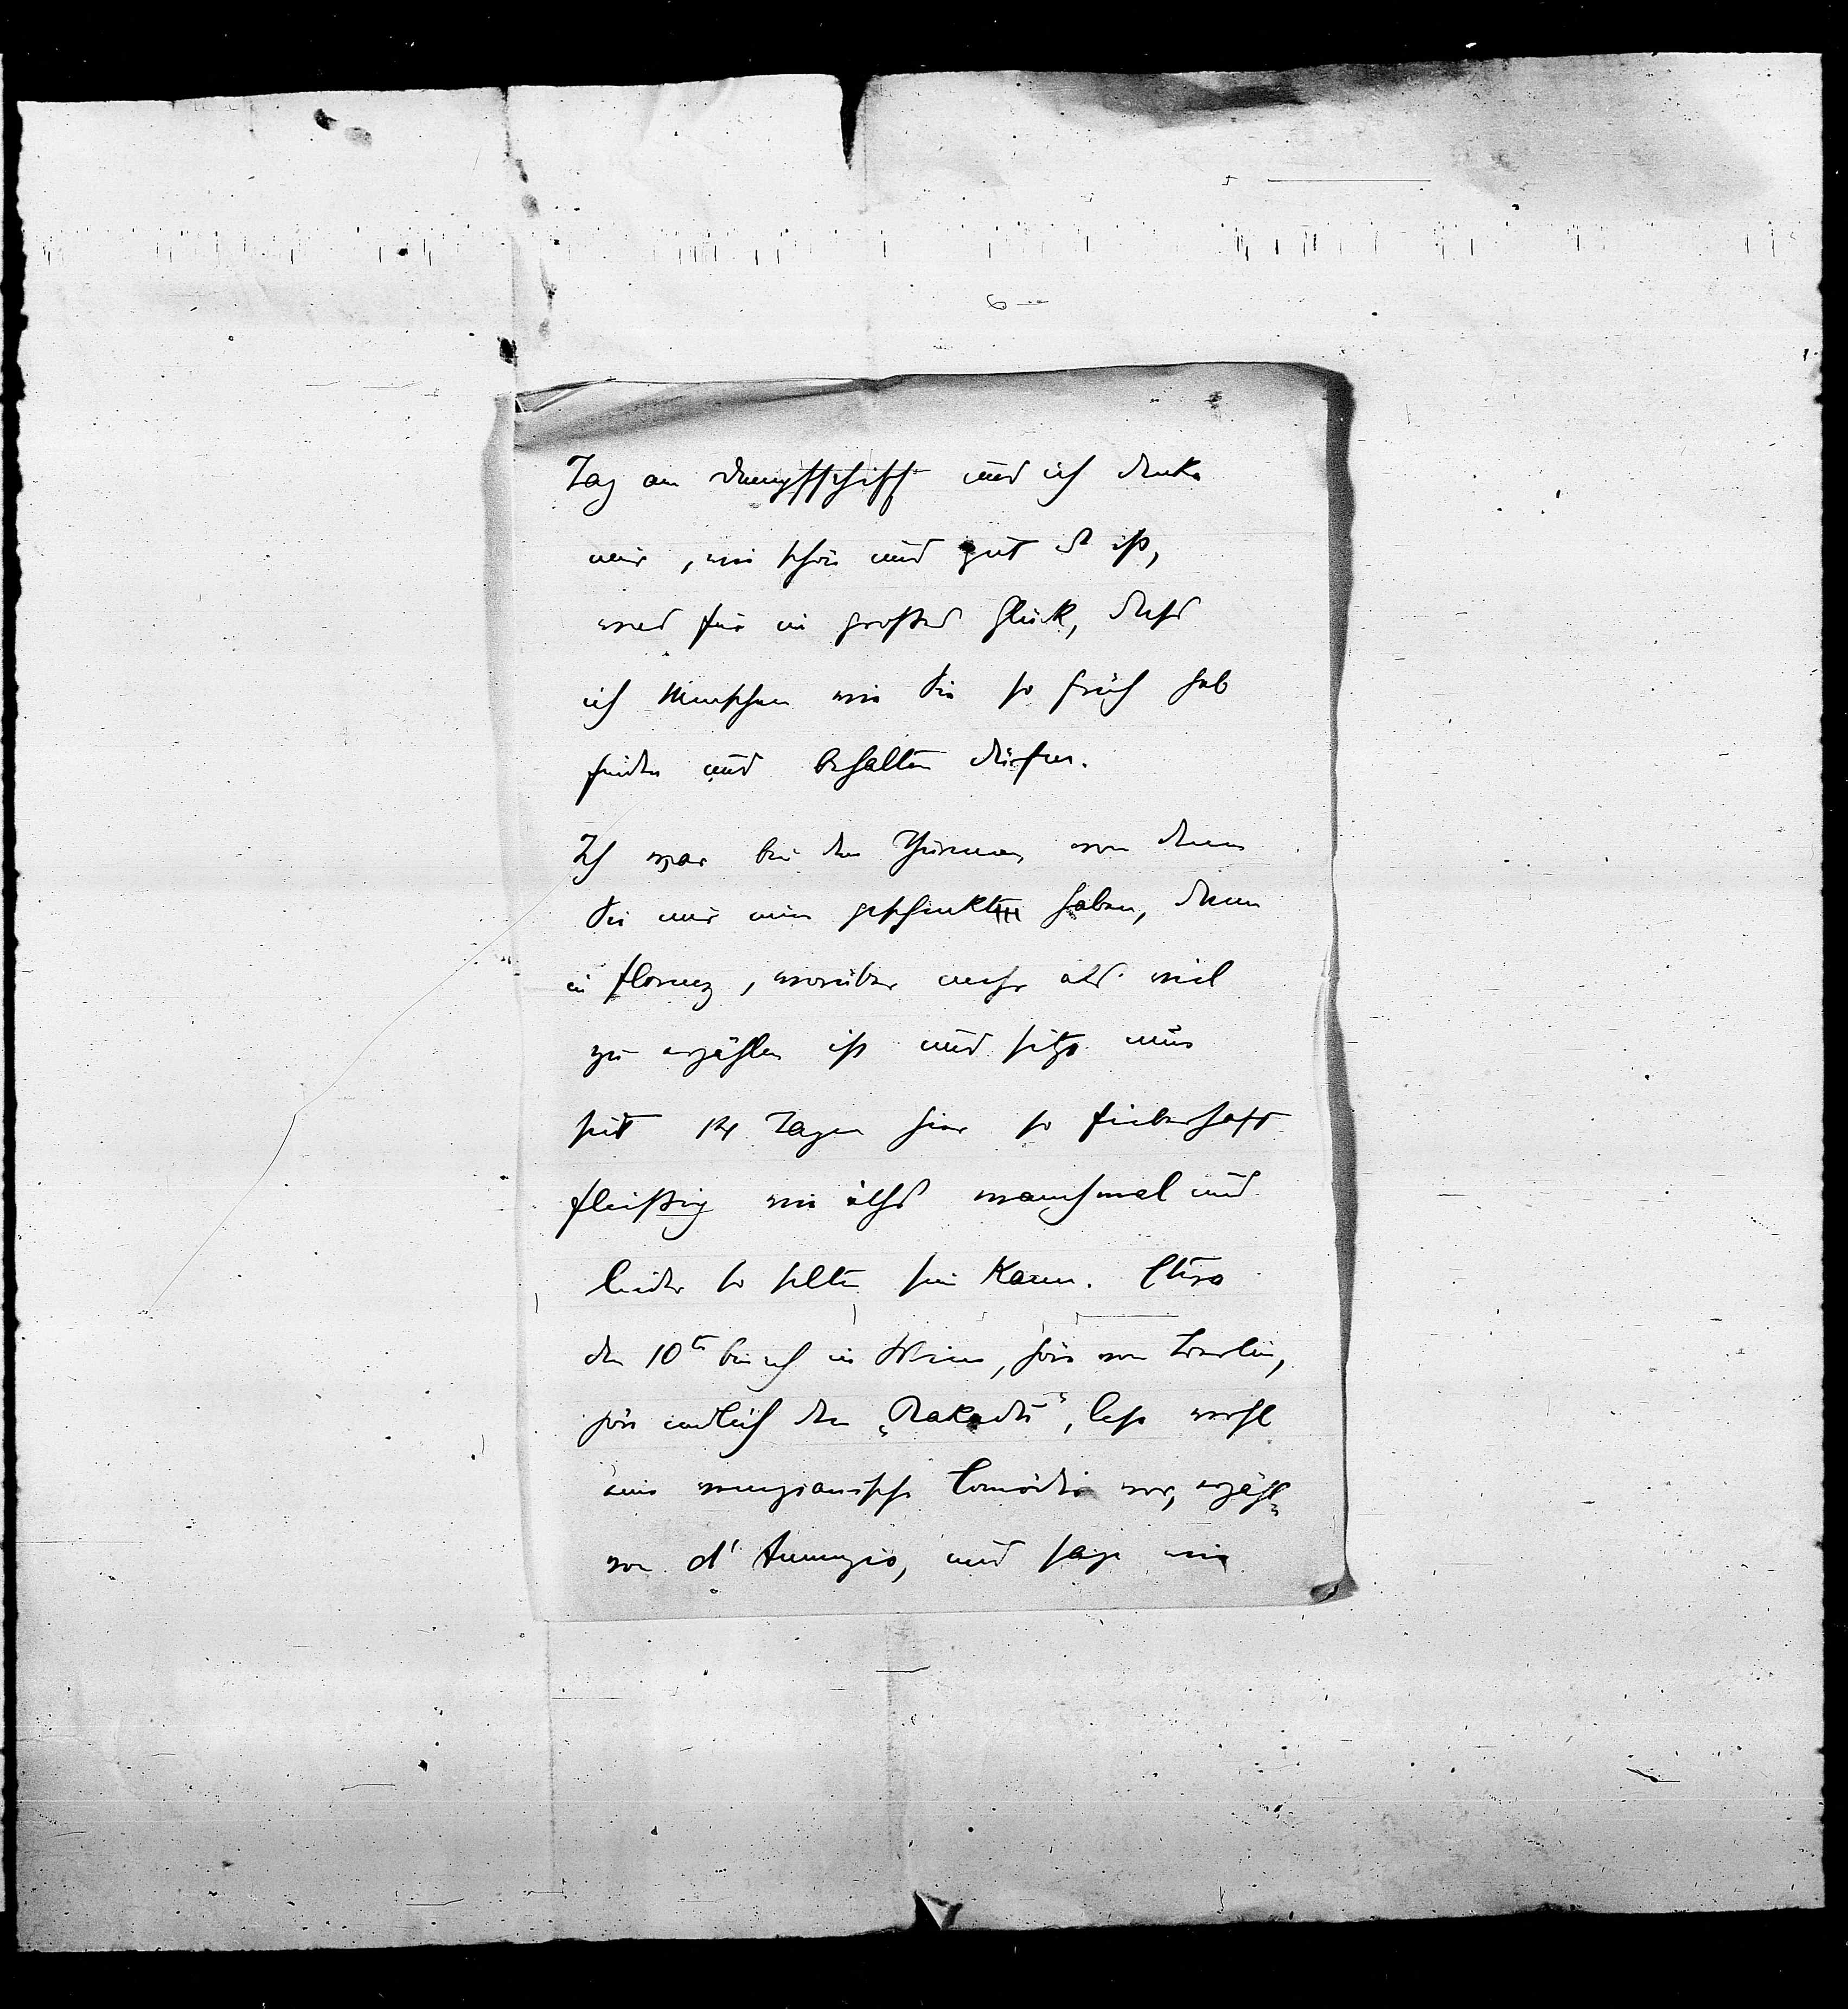 Tag am Dampfschiff und ich denke
mir, wie schön und gut es ist,
was für ein großes Glück, dass
ich Menschen wie Sie so früh hab
finden und behalten dürfen.
Ich war bei den Thürmen von denen
Sie mir einen geschenkt haben, dann
in Florenz, worüber mehr als viel
zu erzählen ist und sitze nun
seit 14 Tagen hier so fieberhaft
fleißig wie ichs manchmal und
leider so selten sein kann. Etwa
den 10ten bin ich in Wien, höre von Berlin,
höre endlich den „Kakadu", lese wohl
eine venezianische Comödie vor, erzähle
von d'Annunzio, und sage wie